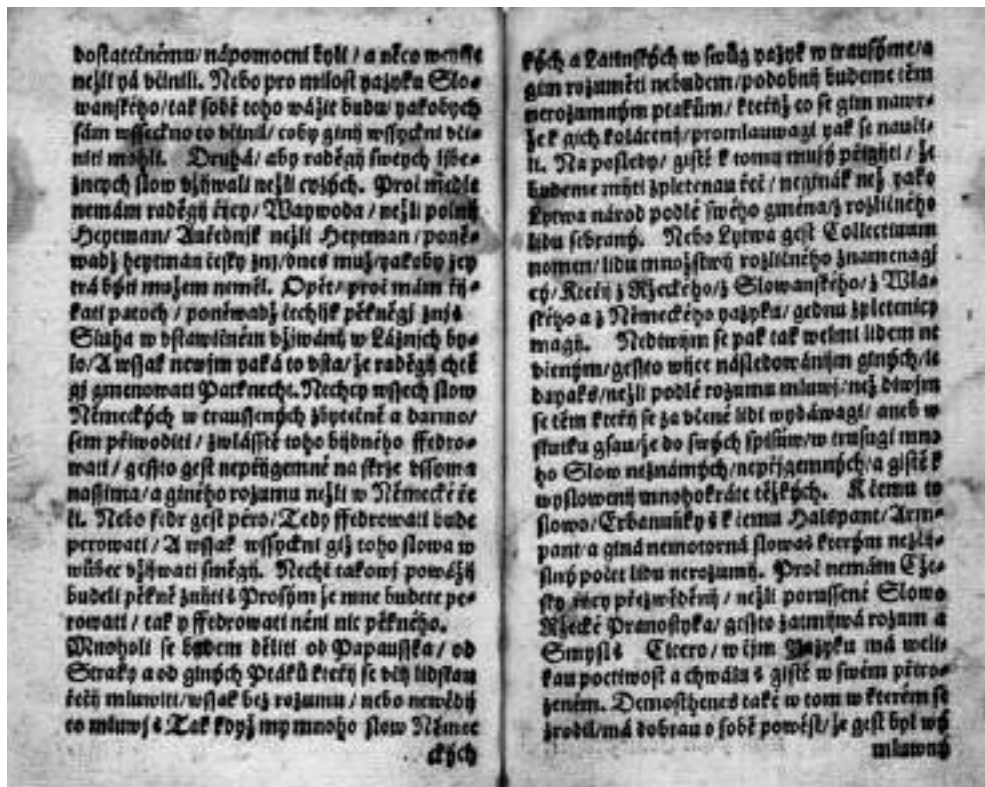 dostatečnému/ nápomocni byli / a něco wen̄sse
nežli yá včinili. Nebo pro milost yazyku Slo-
wanského/ tak sobě toho wážit budu/ yakobych
sám wsseckno to včinil/ coby giný wssyckni vči-
niti mohli. Druhá/ aby raděgij swých ljbe-
žných slow vžjwali nežli cyzých. Proč medle
nemám raděgij řjcy/ Waywoda / nežli polnij
Heytman/ Auřednjk nežli Heytman / poně-
wadž heytman česky znj/ dnes muž/ yakoby zey
trá býti mužem neměl. Opět/ proč mám řij-
kati patoch / poněwadž čechljk pěkněgi znj?
Sluha w vstawičném vžjwánij w Láznjch by-
lo/ A wssak newjm yaká to vsta/ že raděgij chtě
gj gmenowati Patknecht. Nechcy wssech slow
Německých w traussených zbytečně a darmo/
sem přiwoditi / zwlásstě toho bijdného ffedro-
wati / gessto gest nepřijgemné na skrze vssoma
nassima/ a giného rozumu nežli w Německé ře
či. Nebo fedr gest péro/ Tedy ffedrowati bude
perowati / A wssak wssyckni giž toho slowa w
wůbec vžjwati směgij. Nechť takowj powážij
budeli pěkně znýti? Prosým že mne budete pe-
rowati / tak y ffedrowati nénj nic pěkného.
Mnoholi se budem děliti od Papausska/ od
Straky a od giných Ptáků kteřý se včij lidskau
řečij mluwiti/ wssak bez rozumu / nebo newědij
co mluwj? Tak když my mnoho slow Němec
ckých
kých a Latinských w swůg yazyk w trausýme/ a
gim rozuměti nebudem/ podobnij budeme těm
nerozumným ptakům/ kteřýž co se gim nawr-
že k gich kolácenij/ promlauwagi yak se nauči-
li. Na posledy/ gistě k tomu musý přigijti / že
budeme mýti zpletenau řeč / neginák než yako
Lytwa národ podlé swého gména/ z rozličného
lidu sebraný. Nebo Lytwa gest Collectiuum
nomen/ lidu množstwij rozličného znamenagi
cý/ Kteřý z Ržeckého/ z Slowanského/ z Wla-
ského a z Německého yazyku/ gednu zpletenicy
magij. Nediwým se pak tak welmi lidem ne
včeným/ gessto wijce následowánijm giných/ le
dayaks/ nežli podlé rozumu mluwj/ než diwjm
se těm kteřý se za včené lidi wydáwagí/ aneb w
skutku gsau/ že do swých spisůw/ w trusugi mno
ho Slow neznámých/ nepřjgemných/ a gistě k
wyslowenij mnohokráte těžkých. K čemu to
slowo/ Erbannūky? k čemu Halspant/ Arm-
pant/ a giná nemotorná slowa? kterým nezčij-
slný počet lidu nerozumij. Proč nemám Cže-
sky řjcy přezwěděnij / nežli porussené Slowo
Ržecké Pranostyka/ gessto zatmijwá rozum a
Smysl? Cicero/ w čjm Yazyku má weli-
kau poctiwost a chwálu? gistě w swém přiro-
zeném. Demosthenes také w tom w kterém se
zrodil/ má dobrau o sobě powěst/ že gest byl wý
mluwný